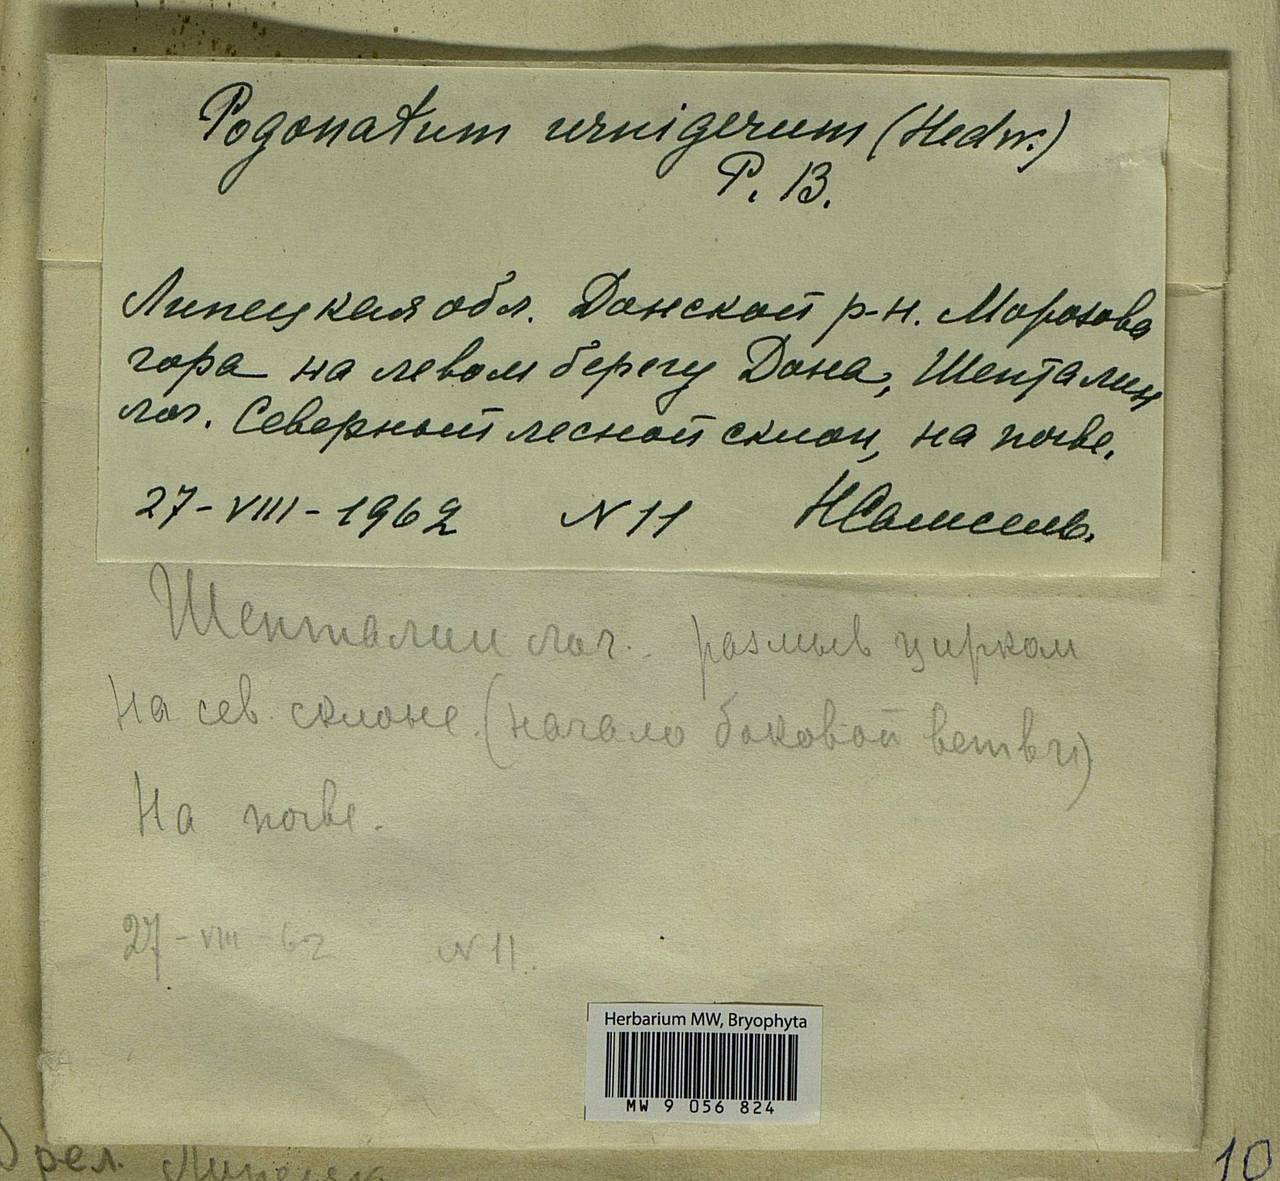 Pogonatum urnigerum (Hedw.)
P. B.
Липецкая обл. Донской р-н. Морозова
гора на левом берегу Дона, Шепталин
лог. Северный лесной склон, на почве.
27-VIII-1962 N 11
Шепталин лог. размыв цирком
На сев. склоне. (начало боковой ветви)
На почве.
27-VIII-62 N 11.
Herbarium MW, Bryophyta
MW 9 056 824
10